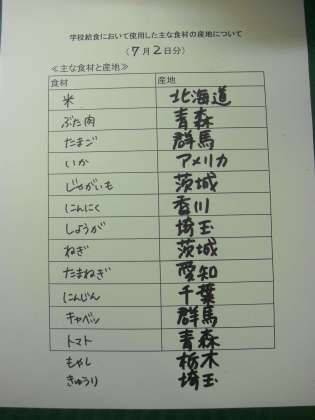 学校給食において使用した主な食材の産地について
(7月2日分)
≪主な食材と産地≫
食材 産地
米 北海道
ぶた肉 青森
たまご 群馬
いか アメリカ
じゃがいも 茨城
にんにく 香川
しょうが 埼玉
ねぎ 茨城
たまねぎ 愛知
にんじん 千葉
キャベツ 群馬
トマト 青森
もやし 栃木
きゅうり 埼玉